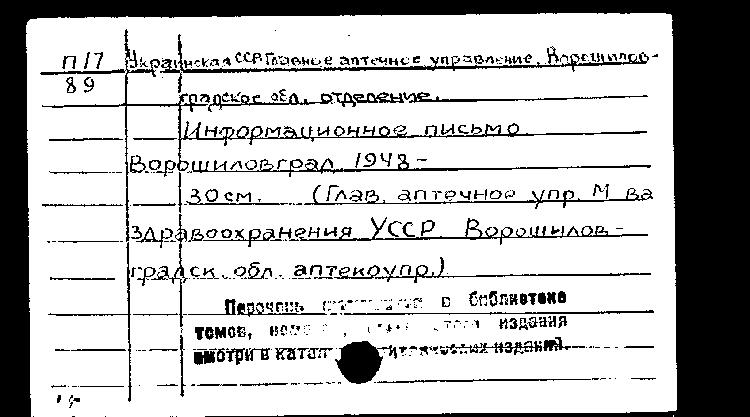 П17 Украинская ССР. Главное аптечное управление. Ворошилов-
89
градское обл. отделение.
Информационное письмо.
Ворошиловград 1948-
30см. (Глав. аптечное упр. М ва
здравоохранения УССР Ворошилов-
градск. обл. аптекоупр.)
Перечень в библиотеке
томов, издания
смотри в издания.